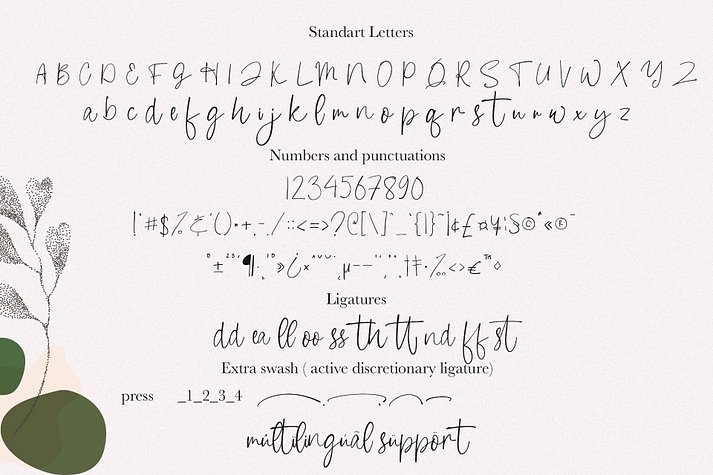 Standart Letters
A B C D E F G H I J K L M N O P Q R S T U V W X Y Z
a b c d e f g h i j k l m n o p q r s t u v w x y z
Numbers and punctuations
1234567890
Ligatures
dd ea ll oo ss th tt nd ff st
Extra swash ( active discretionary ligature)
press _1_2_3_4
mültilingüäl süppört